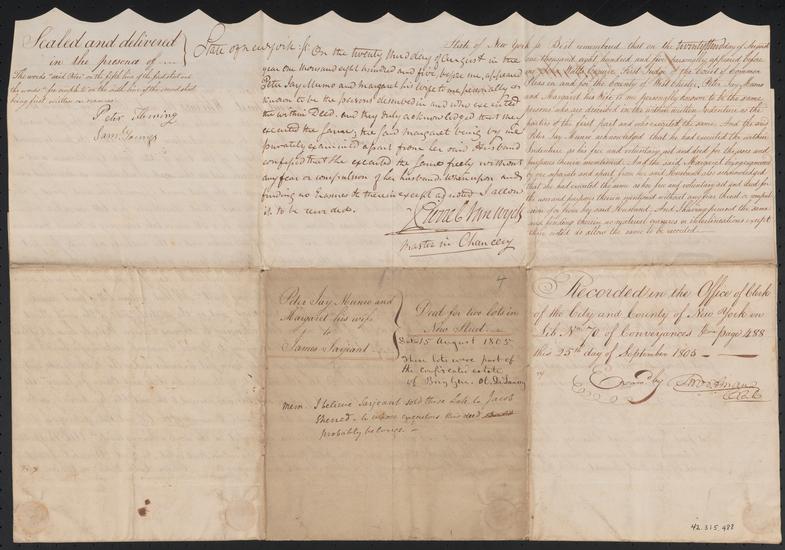 Sealed and delivered
in the presence of
The words "said Peter" on the fifth line of the first part and
being first written on erasures.
Peter Fleming
Saml. Youngs
State of New York ss. On the twenty third day of August in the
year one thousand eight hundred and five, before me, appeared
Peter Jay Munro and Margaret his wife to me personally
known to be the persons described in and who executed
the within Deed, and they duly acknowledged that they
executed the same; the said Margaret being by me
privately examined apart from her said Husband
confessed that she executed the same freely without
any fear or compulsion of her husband. Whereupon and
finding no Erasures therein except as noted I allow
it to be recorded.
Pierre C Van Wyck
Master in Chancery
State of New York ss Be it remembered that on the twenty third day of August
one thousand eight hundred and five, personally appeared before
First Judge of the Court of Common
Pleas in and for the County of West Chester, Peter Jay Munro
and Margaret his Wife to me personally known to be the same
persons who are described in the within written Indenture as the
parties of the first part and who executed the same. And the said
Peter Jay Munro acknowledged that he had executed the within
Indenture as his free and voluntary act and deed for the uses and
purposes therein mentioned. And the said Margaret being examined
by me separate and apart from her said Husband also acknowledged
that she had executed the same as her free and voluntary act and deed for
the uses and purposes therein mentioned without any fear threat or compul
sion of or from her said Husband. And I having perused the same
and finding therein no material erasures or interlineations except
those noted do allow the same to be recorded
4
Peter Jay Munro and
Margaret his wife
to
James Sarjeant
Deed for two lots in
New Street
Dated 15 August 1805
These lots were part of
the confiscated estate
of Brig Gen. Ol. DeLancey
Mem. I believe Sarjeant sold these Lots to Jacob
Sherred - to whose executors this deed
probably belongs. -
Recorded in the Office of Clerk
of the City and County of New York in
Lib. No. 70 of Conveyances page 488
this 25th day of September 1805
Examd by T Wortman
Clk
42.315.488